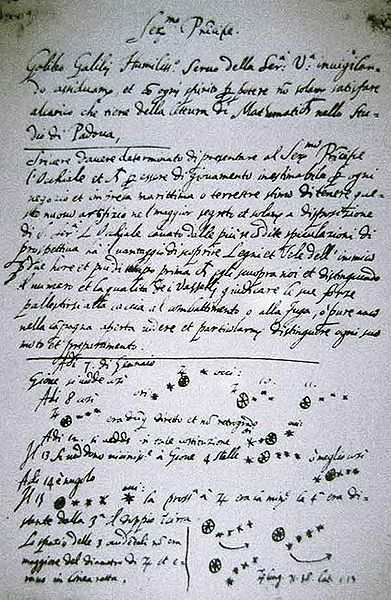 Ser.mo Principe.
Galileo Galilei Humiliss.o Servo della Ser.a V.a invigilan-
do assiduam.te et cō ogni spirito p potere nō solam.te satisfare
al carico che tiene della lettura di Mathematica nello Stu-
dio di Padova,
Scrivere d'avere determinato di presentare al Ser.mo Principe
l'Occhiale et p essere di giovamento inestimabile p ogni
negozio et impresa marittima o terrestre stimo di tenere que-
sto nuovo artifizio nel maggior segreto et solam.te a disposizione
di S. Ser.tà L'Occhiale cavato dalle più recondite speculazioni di
prospettiva ha il vantaggio di scoprire Legni et Vele dell'inimico
p due hore et più di tempo prima ch'egli scuopra noi et distinguendo
il numero et la qualità de i Vasselli giudicare le sue forze
pallestirsi alla caccia al combattimento o alla fuga, o pure anco
nella capagna aperta vedere et particolarm.te distinguere ogni suo
moto et preparamento.
Adì 7. di Gennaio
Giove si vedde così
Adì 8 così
era dūq diretto et nō retrogrado
Adì 12. si vedde in tale costituzione
Il 13 si veddono vicinissime a Giove 4 stelle
Adì 14 è nugolo
Il 15
la pross.a a ♃ era la min.e la 4.a era di-
stante dalla 3.a il doppio circa
Lo spazio delle 3 occidentali nō era
maggiore del diametro di ♃ et e-
rano in linea retta.